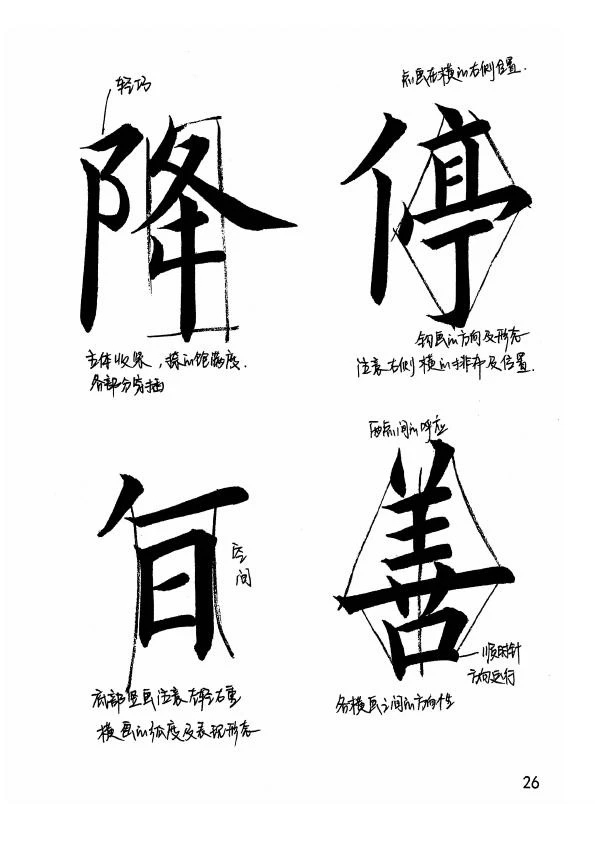 轻巧
降
主体收紧，捺的饱满度.
各部分穿插
点画在横的右侧位置.
停
钩画的方向及形态
注意右侧横的排布及位置.
旨
空
间
底部竖画注意左轻右重
横画的弧度及表现形态
两点间的呼应
善
顺时针
方向运行
各横画之间的方向性
26